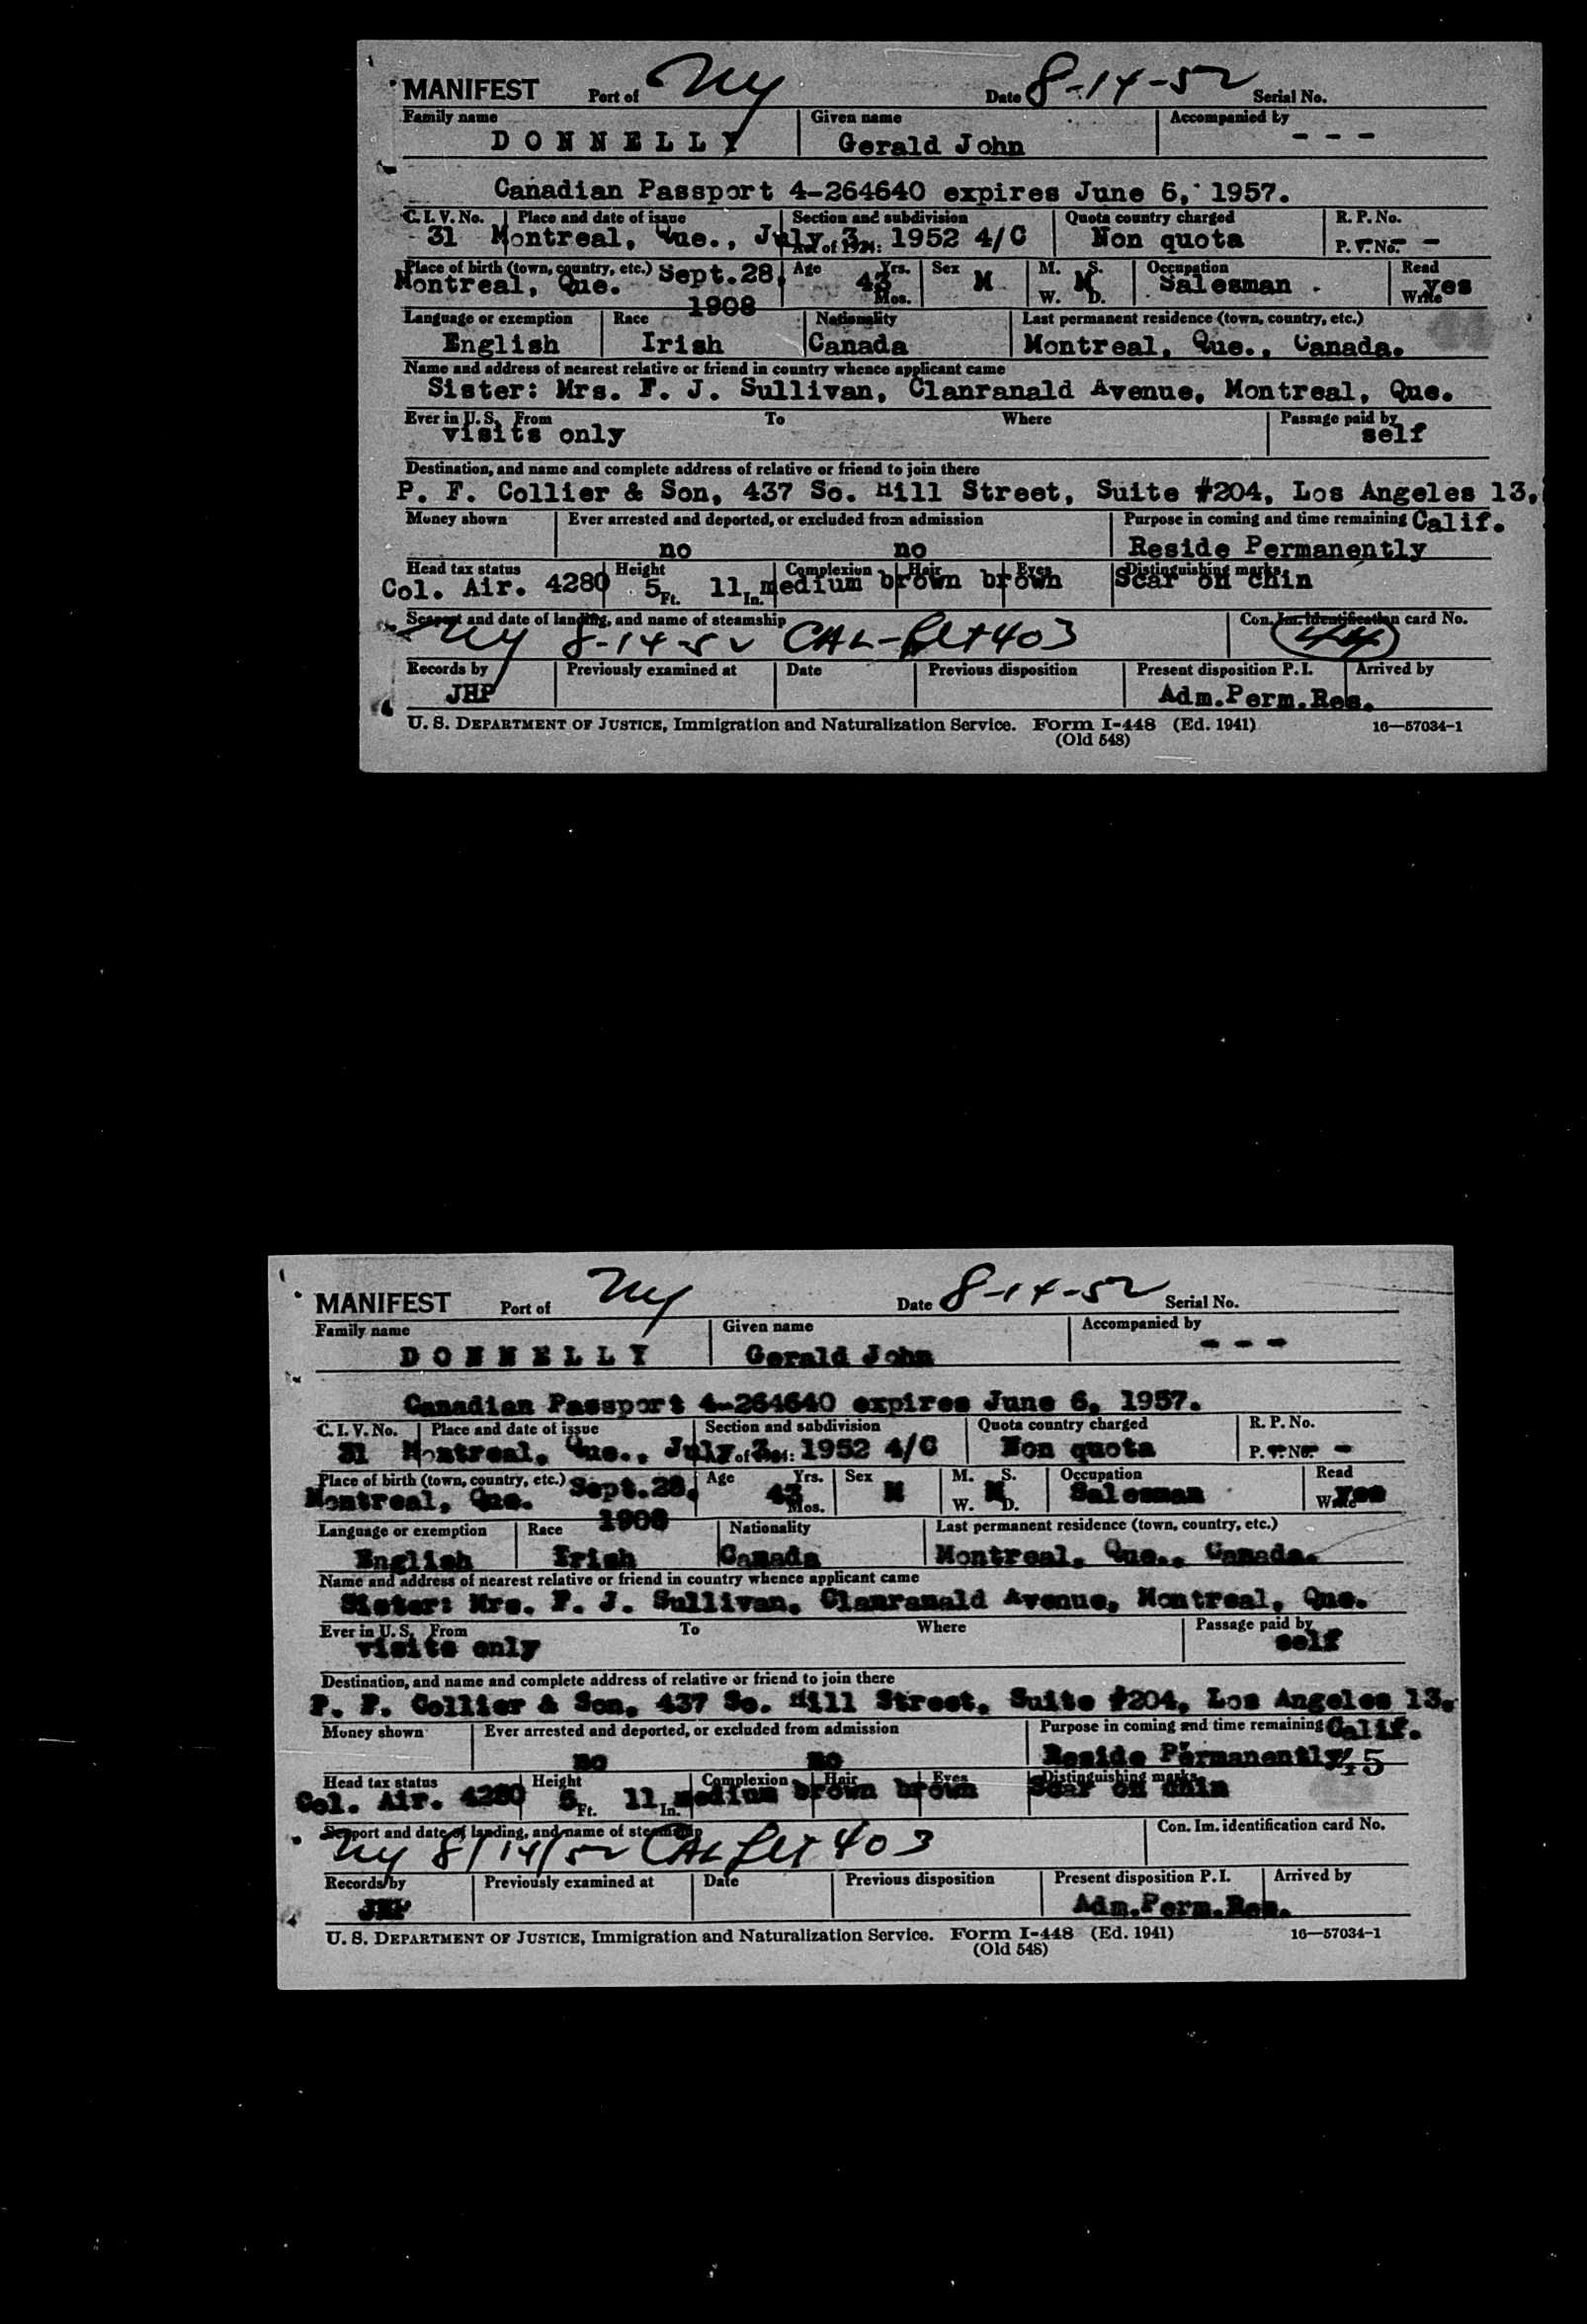 MANIFEST Port of NY Date 8-14-52 Serial No.
Family name Given name Accompanied by
DONNELLY Gerald John - - -
Canadian Passport 4-264640 expires June 6, 1957.
C. I. V. No. Place and date of issue Section and subdivision Quota country charged R. P. No.
31 Montreal, Que., July 3, Act of 1924: 1952 4/C Non quota P. V. No. - -
Place of birth (town, country, etc.) Sept.28, Age Yrs. Sex M. S. Occupation Read
Montreal, Que. 1908 43 Mos. M M W. D. Salesman Write yes
Language or exemption Race Nationality Last permanent residence (town, country, etc.)
English Irish Canada Montreal, Que., Canada.
Name and address of nearest relative or friend in country whence applicant came
Sister: Mrs. F. J. Sullivan, Clanranald Avenue, Montreal, Que.
Ever in U. S. From To Where Passage paid by
visits only self
Destination, and name and complete address of relative or friend to join there
P. F. Collier & Son, 437 So. Hill Street, Suite #204, Los Angeles 13,
Money shown Ever arrested and deported, or excluded from admission Purpose in coming and time remaining Calif.
no no Reside Permanently
Head tax status Height Complexion Hair Eyes Distinguishing marks
Col. Air. 4280 5 Ft. 11 In. medium brown brown Scar on chin
Seaport and date of landing, and name of steamship Con. Im. identification card No.
NY 8-14-52 CAL-flt 403
Records by Previously examined at Date Previous disposition Present disposition P. I. Arrived by
JHP Adm.Perm.Res.
U. S. DEPARTMENT OF JUSTICE, Immigration and Naturalization Service. Form I-448 (Ed. 1941) 16—57034-1
(Old 548)
MANIFEST Port of NY Date 8-14-52 Serial No.
Family name Given name Accompanied by
DONNELLY Gerald John - - -
Canadian Passport 4-264640 expires June 6, 1957.
C. I. V. No. Place and date of issue Section and subdivision Quota country charged R. P. No.
31 Montreal, Que., July 3, Act of 1924: 1952 4/C Non quota P. V. No. - -
Place of birth (town, country, etc.) Sept.28, Age Yrs. Sex M. S. Occupation Read
Montreal, Que. 1908 43 Mos. M M W. D. Salesman Write yes
Language or exemption Race Nationality Last permanent residence (town, country, etc.)
English Irish Canada Montreal, Que., Canada.
Name and address of nearest relative or friend in country whence applicant came
Sister: Mrs. F. J. Sullivan, Clanranald Avenue, Montreal, Que.
Ever in U. S. From To Where Passage paid by
visits only self
Destination, and name and complete address of relative or friend to join there
P. F. Collier & Son, 437 So. Hill Street, Suite #204, Los Angeles 13,
Money shown Ever arrested and deported, or excluded from admission Purpose in coming and time remaining Calif.
no no Reside Permanently
Head tax status Height Complexion Hair Eyes Distinguishing marks
Col. Air. 4280 5 Ft. 11 In. medium brown brown Scar on chin
Seaport and date of landing, and name of steamship Con. Im. identification card No.
NY 8/14/52 CAL flt 403
Records by Previously examined at Date Previous disposition Present disposition P. I. Arrived by
JHP Adm.Perm.Res.
U. S. DEPARTMENT OF JUSTICE, Immigration and Naturalization Service. Form I-448 (Ed. 1941) 16—57034-1
(Old 548)